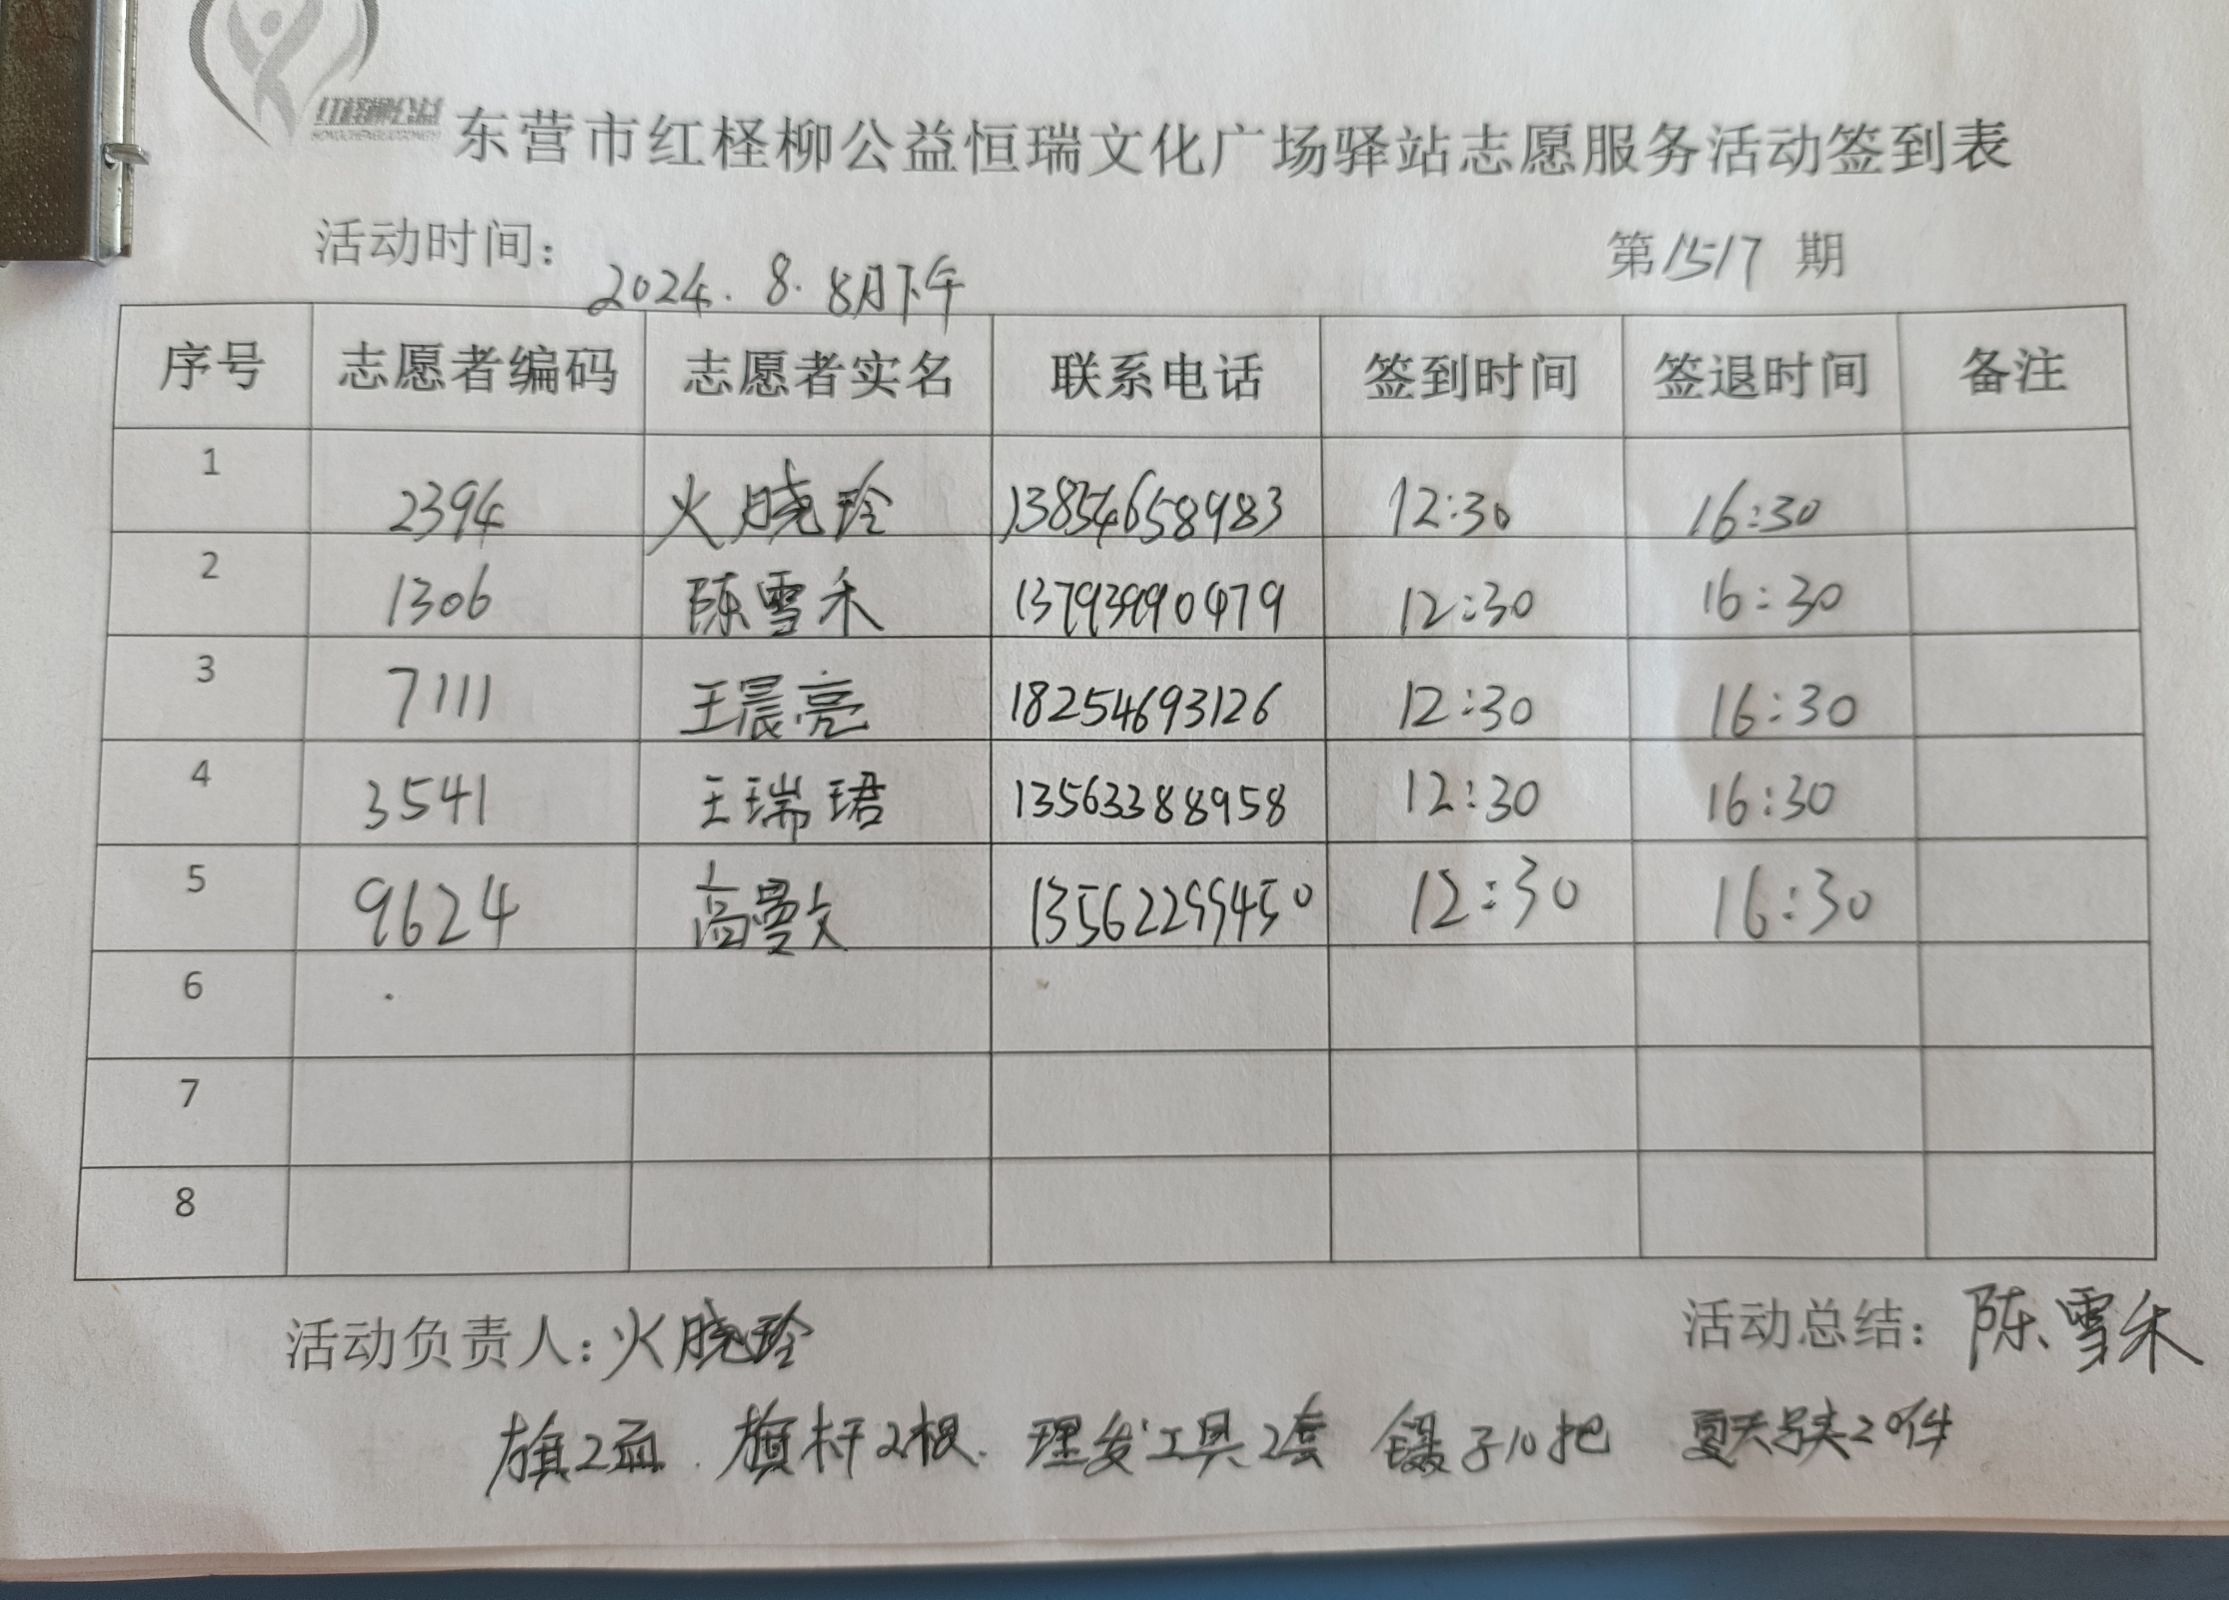 红柽柳公益
HONGCHENGLIUGONGYI
东营市红柽柳公益恒瑞文化广场驿站志愿服务活动签到表
活动时间： 2024.8.8月下午 第1517期
序号 志愿者编码 志愿者实名 联系电话 签到时间 签退时间 备注
1 2394 火晓玲 13854658983 12:30 16:30
2 1306 陈雪禾 13793990479 12:30 16:30
3 7111 王晨亮 18254693126 12:30 16:30
4 3541 王瑞珺 13563388958 12:30 16:30
5 9624 高曼文 13562299450 12:30 16:30
6
7
8
活动负责人：火晓玲 活动总结：陈雪禾
旗2面. 旗杆2根. 理发工具2套 镊子10把 夏天 20件